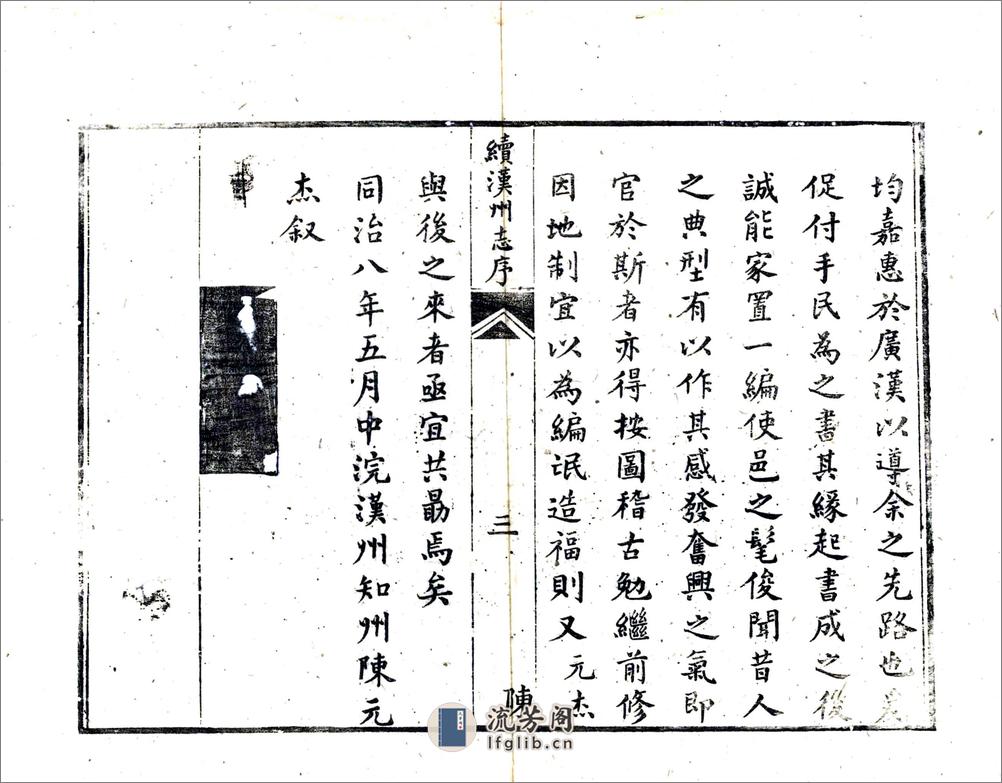 均嘉惠於廣漢以導余之先路也爰
促付手民為之書其緣起書成之後
誠能家置一編使邑之髦俊聞昔人
之典型有以作其感發奮興之氣即
官於斯者亦得按圖稽古勉繼前修
因地制宜以為編氓造福則又元杰
續漢州志序
三
陳
與後之來者亟宜共勗焉矣
同治八年五月中浣漢州知州陳元
杰叙
流芳阁
lfglib.cn